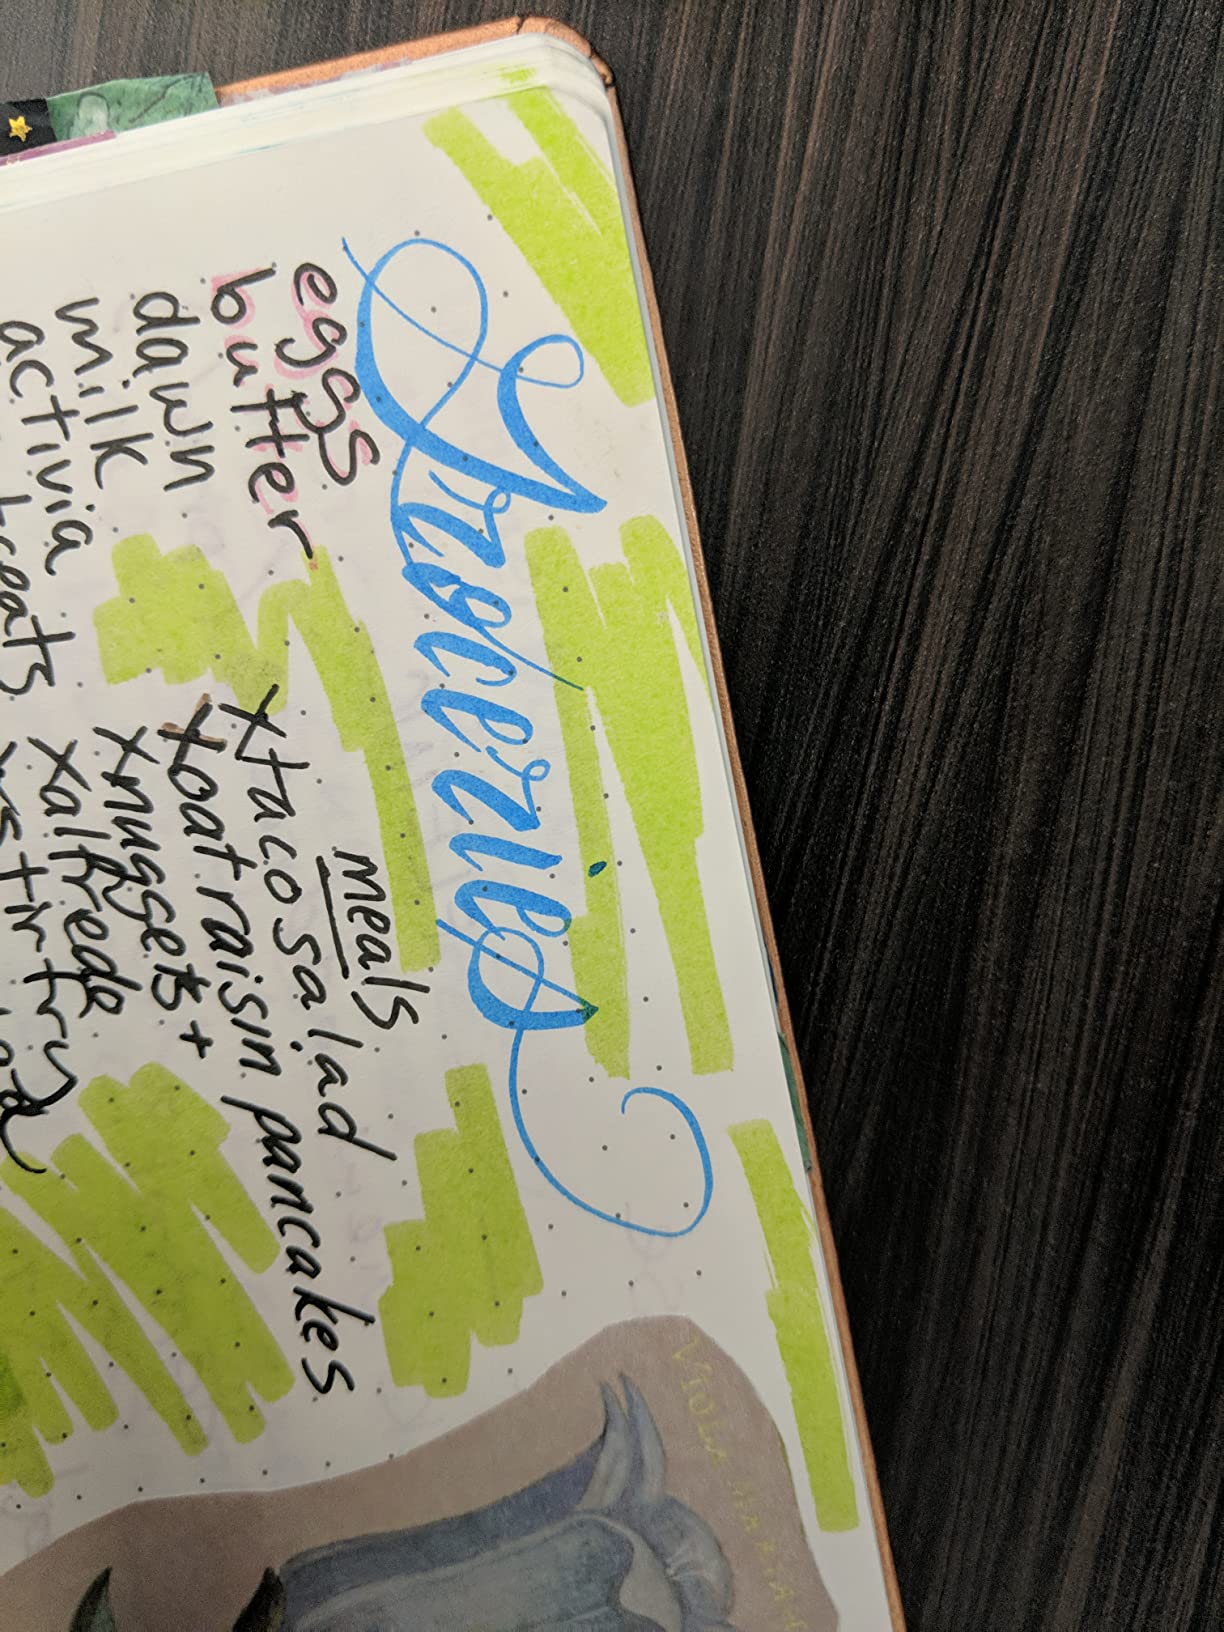 Groceries
eggs
butter
dawn
milk
activia
meals
x taco salad
x oat raisin pancakes
x nuggets +
x alfredo
x stir fry
VIOLA